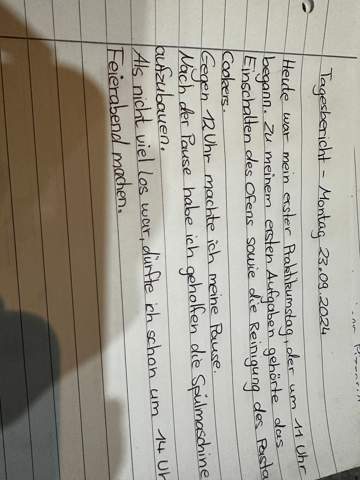 Tagesbericht - Montag 23.09.2024
Heute war mein erster Praktikumstag, der um 11 Uhr
begann. Zu meinem ersten Aufgaben gehörte das
Einschalten des Ofens sowie die Reinigung des Pasta
Cookers.
Gegen 12 Uhr machte ich meine Pause.
Nach der Pause habe ich geholfen die Spülmaschine
aufzubauen.
Als nicht viel los war, dürfte ich schon um 14 Uh
Feierabend machen.